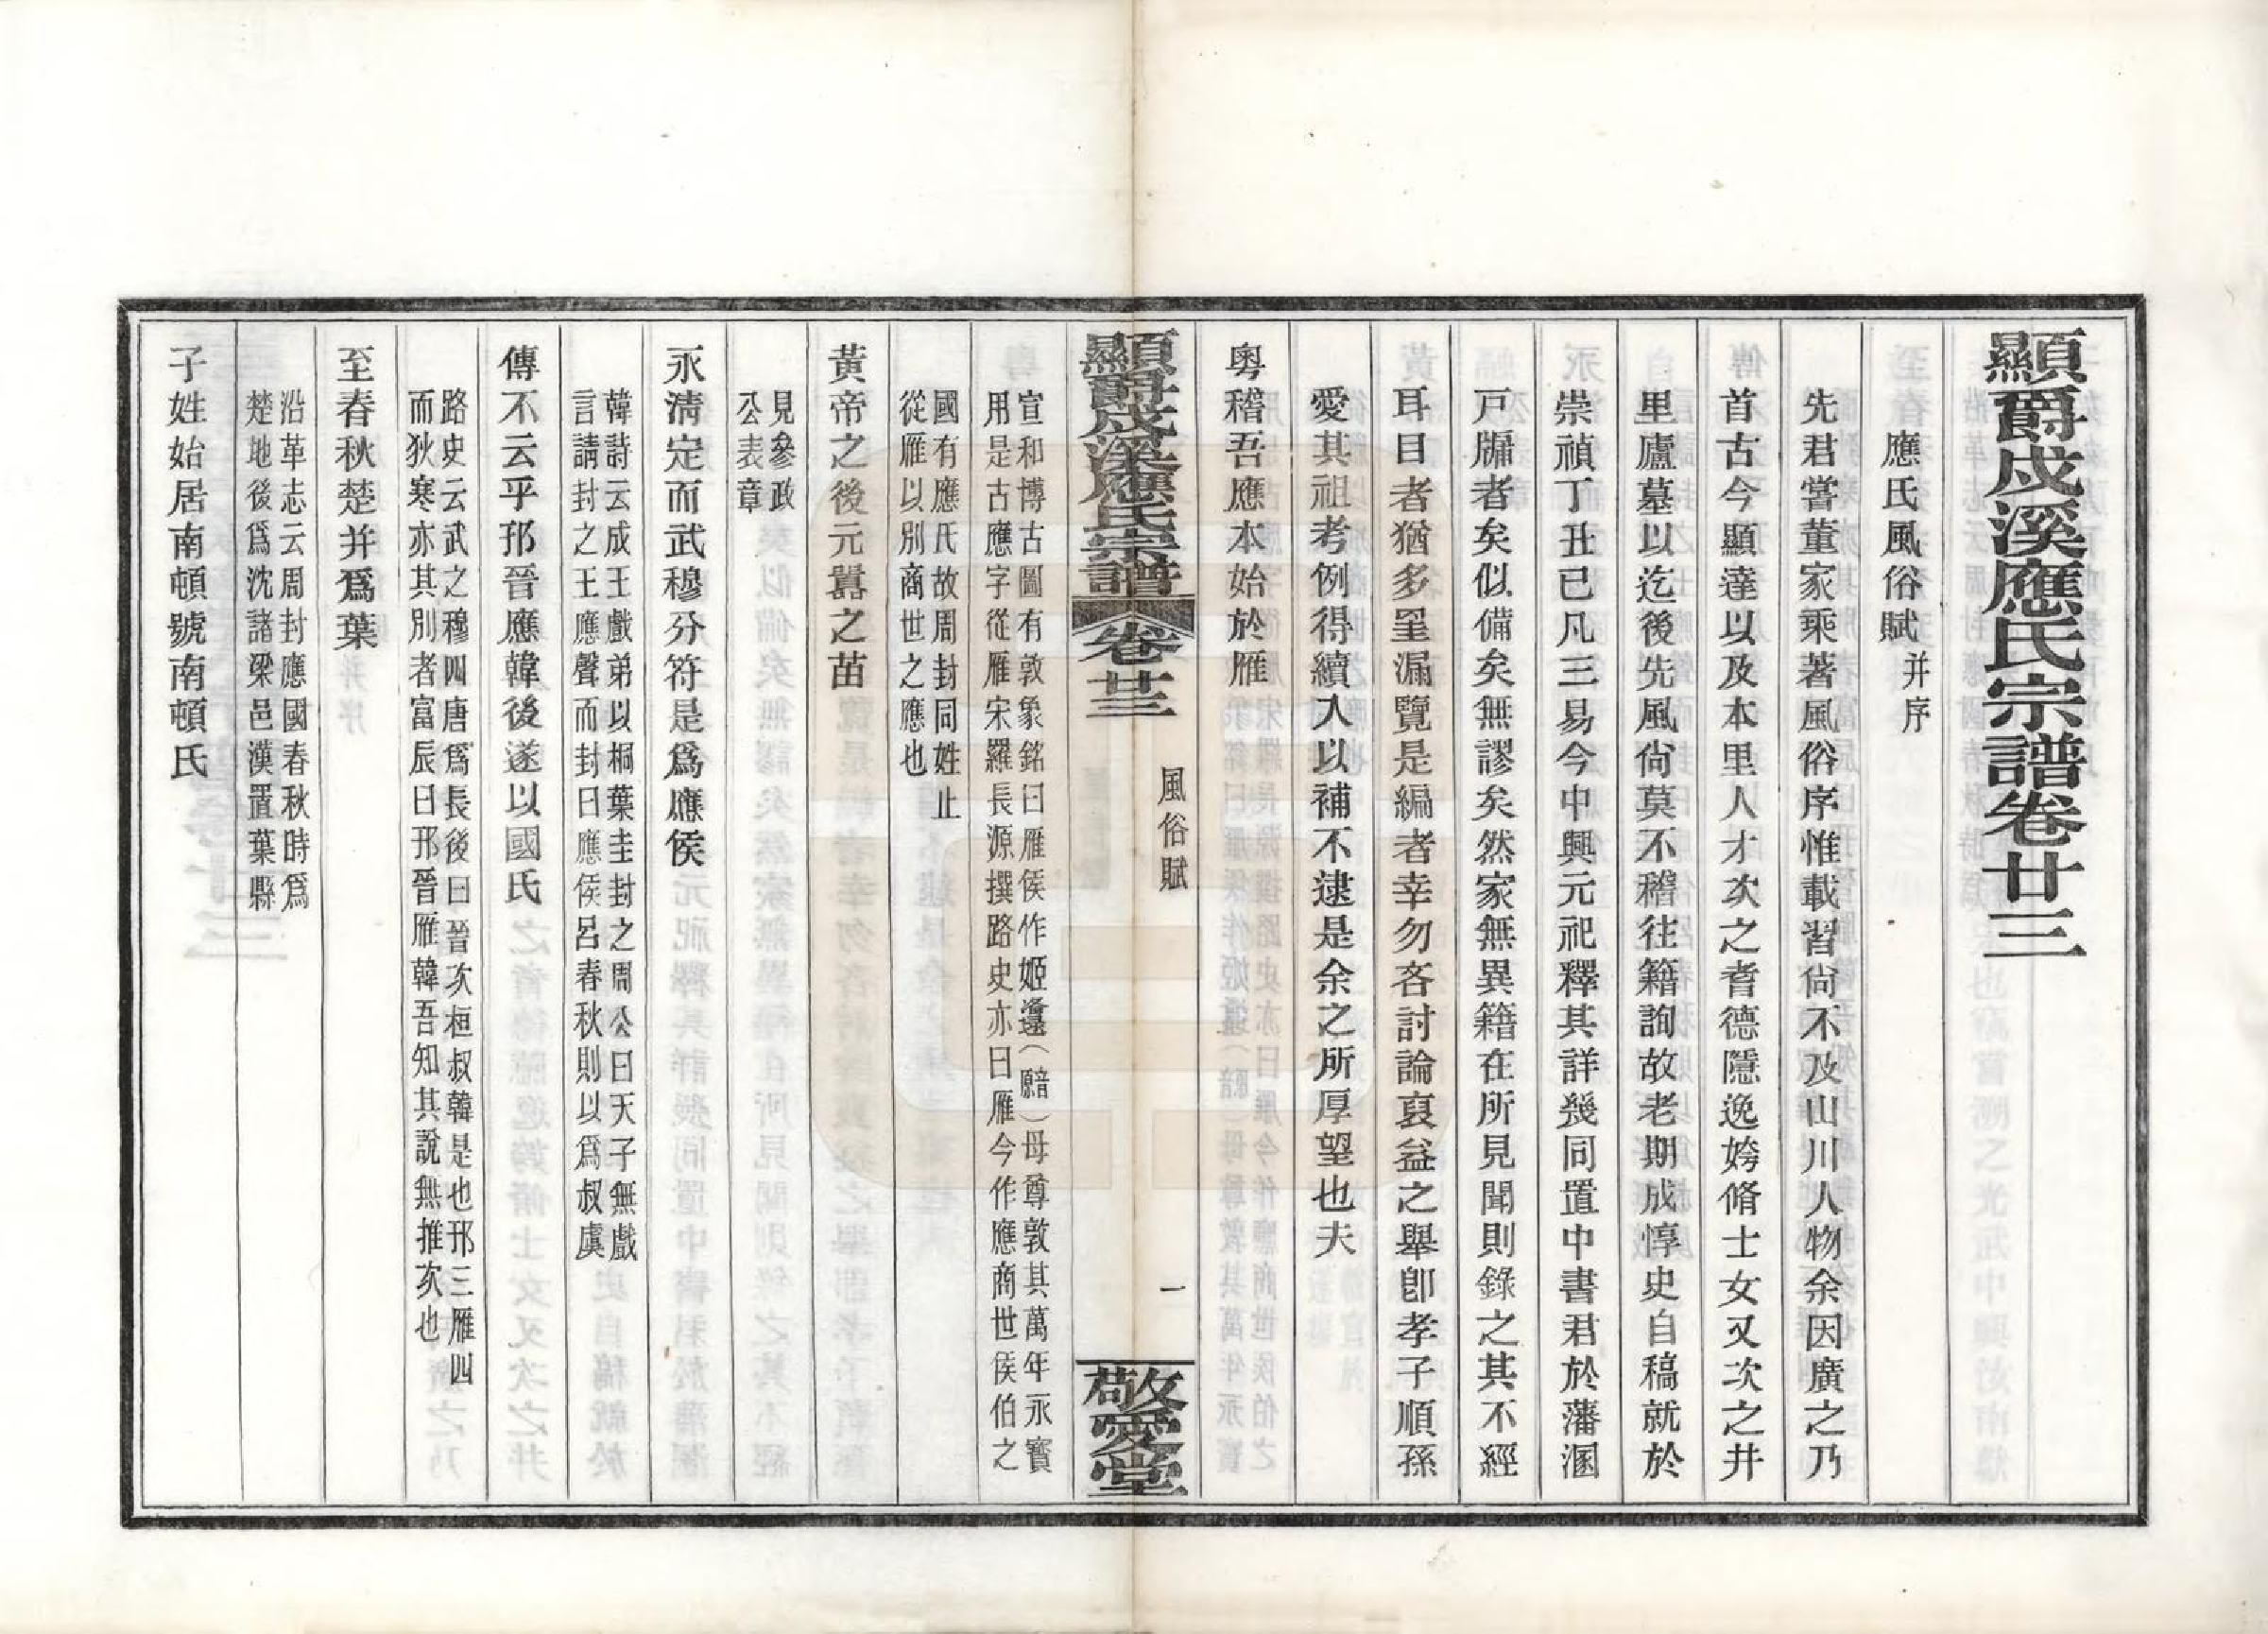 顯爵戍溪應氏宗譜卷廿三
應氏風俗賦并序
先君嘗董家乘著風俗序惟載習尙不及山川人物余因廣之乃
首古今顯達以及本里人才次之耆德隱逸姱脩士女又次之井
里廬墓以迄後先風尙莫不稽往籍詢故老期成惇史自稿就於
崇禎丁丑已凡三易今中興元祀釋其詳燹同置中書君於藩溷
戸牖者矣似備矣無謬矣然家無異籍在所見聞則錄之其不經
耳目者猶多罣漏覽是編者幸勿吝討論裒益之舉卽孝子順孫
愛其祖考例得續入以補不逮是余之所厚望也夫
粵稽吾應本始於雁
宣和博古圖有敦象銘曰雁侯作姬邍（䪦）母尊敦其萬年永寳
用是古應字從雁宋羅長源撰路史亦曰雁今作應商世侯伯之
國有應氏故周封同姓止
從雁以別商世之應也
黃帝之後元囂之苗
見參政
公表章
永淸定而武穆分符是爲應侯
韓詩云成王戲弟以桐葉圭封之周公曰天子無戲
言請封之王應聲而封曰應侯呂春秋則以爲叔虞
傳不云乎邘晉應韓後遂以國氏
路史云武之穆四唐爲長後曰晉次桓叔韓是也邘三雁四
而狄寒亦其別者富辰曰邘晉雁韓吾知其說無推次也
至春秋楚并爲葉
沿革志云周封應國春秋時爲
楚地後爲沈諸梁邑漢置葉縣
子姓始居南頓號南頓氏
顯爵戍溪應氏宗譜
卷廿三
風俗賦
一
敬愛堂